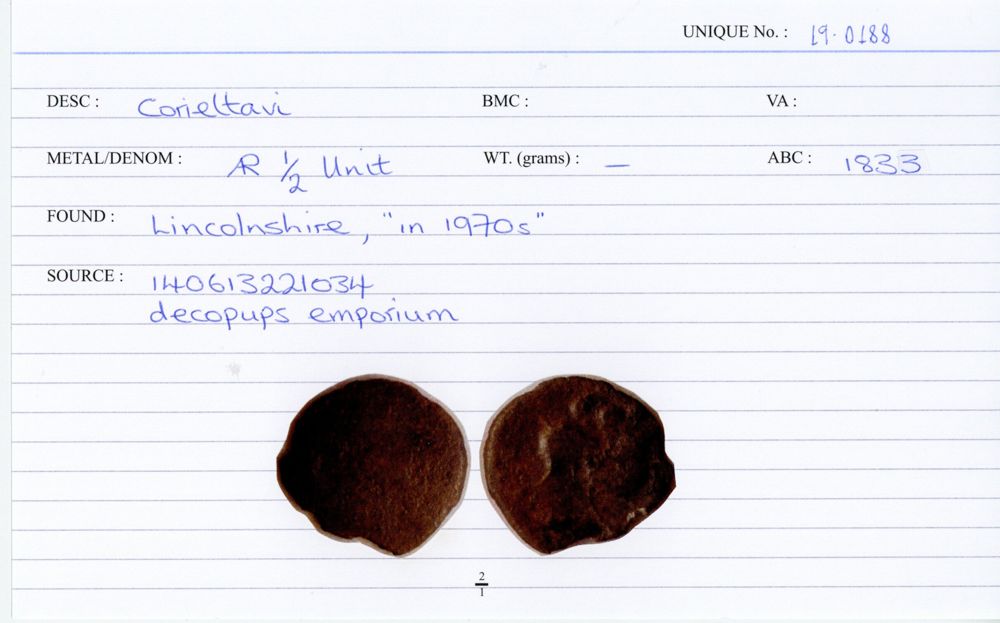 UNIQUE No. : 19.0188
DESC : Corieltavi BMC : VA :
METAL/DENOM : AR 1/2 Unit WT. (grams) : — ABC : 1833
FOUND : Lincolnshire, "in 1970s"
SOURCE : 140613221034
decopups emporium
2/1